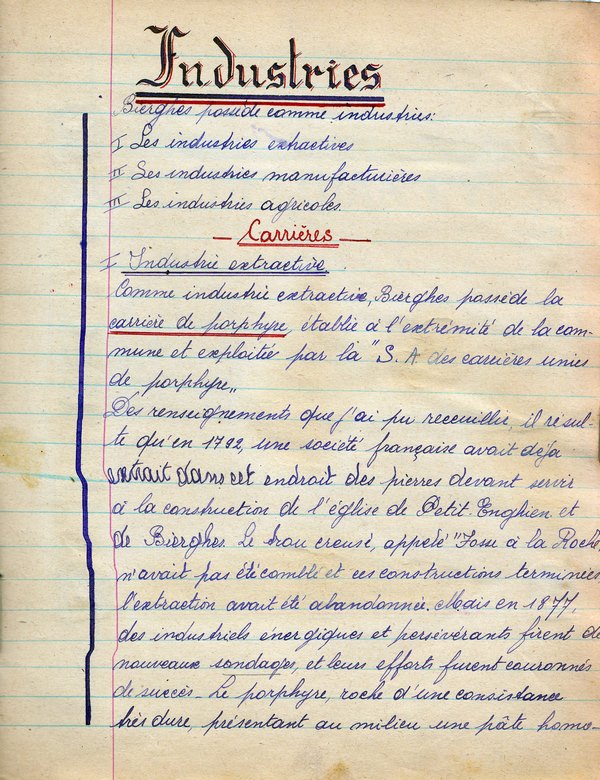 Industries
Bierghes possède comme industries:
I Les industries extractives
II Les industries manufacturières
III Les industries agricoles.
— Carrières —
I Industrie extractive
Comme industrie extractive, Bierghes possède la
carrière de porphyre, établie à l'extrémité de la com-
mune et exploitée par la "S. A des carrières unies
de porphyre„
Des renseignements que j'ai pu recueillis, il résul-
te qu'en 1792, une société française avait déjà
extrait dans cet endroit des pierres devant servir
à la construction de l'église de Petit Enghien et
de Bierghes. Le trou creusé, appelé "Fosse à la Roche,
n'avait pas été comblé et ces constructions terminées
l'extraction avait été abandonnée. Mais en 1877,
des industriels énergiques et persévérants firent de
nouveaux sondages, et leurs efforts furent couronnés
de succès - Le porphyre, roche d'une consistance
très dure, présentant au milieu une pâte homo-